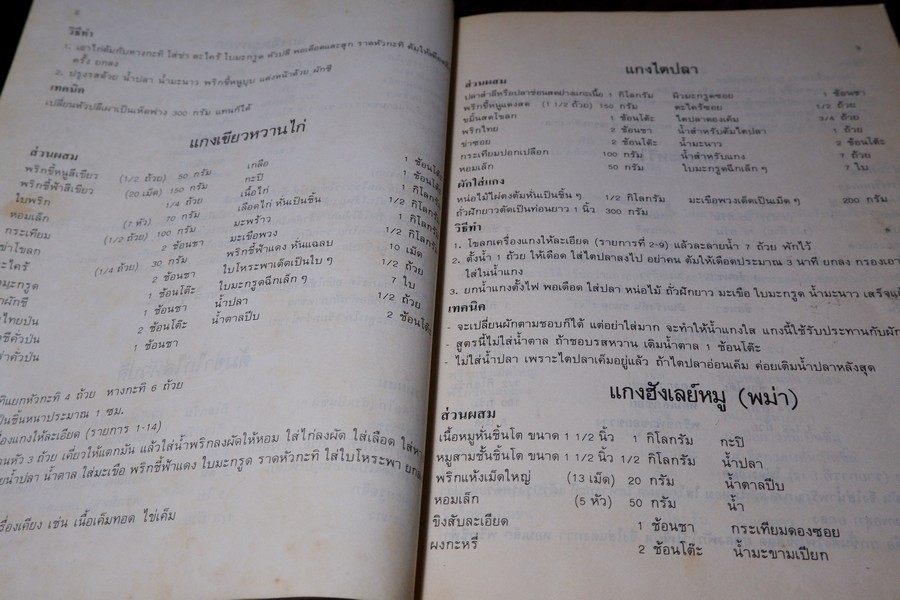 8
วิธีทำ
1. เอาไก่ต้มกับหางกะทิ ใส่ข่า ตะไคร้ ใบมะกรูด หัวปลี พอเดือดและสุก ราดหัวกะทิ ต้มให้เดือดอีก
ครั้ง ยกลง
2. ปรุงรสด้วย น้ำปลา น้ำมะนาว พริกขี้หนูบุบ แต่งหน้าด้วย ผักชี
เทคนิค
เปลี่ยนหัวปลีมาเป็นเห็ดฟาง 300 กรัม แทนก็ได้
แกงเขียวหวานไก่
ส่วนผสม
พริกขี้หนูสีเขียว (1/2 ถ้วย) 50 กรัม เกลือ 1 ช้อนโต๊ะ
พริกชี้ฟ้าสีเขียว (20 เม็ด) 150 กรัม กะปิ 1 ช้อนโต๊ะ
ใบพริก 1/4 ถ้วย เนื้อไก่ 1 กิโลกรัม
หอมเล็ก (7 หัว) 70 กรัม เลือดไก่ หั่นเป็นชิ้น
กระเทียม (1/2 ถ้วย) 100 กรัม มะพร้าว 1 กิโลกรัม
ข่าโขลก 2 ช้อนชา มะเขือพวง 1 ถ้วย
ตะไคร้ (1/4 ถ้วย) 30 กรัม พริกชี้ฟ้าแดง หั่นแฉลบ 10 เม็ด
มะกรูด 2 ช้อนชา ใบโหระพาเด็ดเป็นใบ ๆ 1 ถ้วย
ผักชี 1 ช้อนโต๊ะ ใบมะกรูดฉีกเล็ก ๆ 7 ใบ
ไทยป่น 1 ช้อนชา น้ำปลา 1/2 ถ้วย
ชีคั่วป่น 2 ช้อนโต๊ะ น้ำตาลปีบ 2 ช้อนโต๊ะ
ร่าคั่วป่น 1 ช้อนชา
ทิแยกหัวกะทิ 4 ถ้วย หางกะทิ 6 ถ้วย
ป็นชิ้นหนาประมาณ 1 ซม.
รื่องแกงให้ละเอียด (รายการ 1-14)
หัว 3 ถ้วย เคี่ยวให้แตกมัน แล้วใส่น้ำพริกลงผัดให้หอม ใส่ไก่ลงผัด ใส่เลือด ใส่หาง
น้ำปลา น้ำตาล ใส่มะเขือ พริกชี้ฟ้าแดง ใบมะกรูด ราดหัวกะทิ ใส่ใบโหระพา ยกลง
รื่องเคียง เช่น เนื้อเค็มทอด ไข่เค็ม
9
แกงไตปลา
ส่วนผสม
ปลาสำลีหรือปลาช่อนสดย่างแกะเนื้อ 1 กิโลกรัม ผิวมะกรูดซอย 1 ช้อนชา
พริกขี้หนูแดงสด (1 1/2 ถ้วย) 150 กรัม ตะไคร้ซอย 1/2 ถ้วย
ขมิ้นสดโขลก 1 ช้อนโต๊ะ ไตปลาดองเค็ม 3/4 ถ้วย
พริกไทย 2 ช้อนชา น้ำสำหรับต้มไตปลา 1 ถ้วย
ข่าซอย 2 ช้อนโต๊ะ น้ำมะนาว 2 ช้อนโต๊ะ
กระเทียมปอกเปลือก 100 กรัม น้ำสำหรับแกง 7 ถ้วย
หอมเล็ก 50 กรัม ใบมะกรูดฉีกเล็ก ๆ 7 ใบ
ผักใส่แกง
หน่อไม้ไผ่ตงต้มหั่นเป็นชิ้น ๆ 1/2 กิโลกรัม มะเขือพวงเด็ดเป็นเม็ด ๆ 200 กรัม
ถั่วฝักยาวตัดเป็นท่อนยาว 1 นิ้ว 300 กรัม
วิธีทำ
1. โขลกเครื่องแกงให้ละเอียด (รายการที่ 2-9) แล้วละลายน้ำ 7 ถ้วย พักไว้
2. ตั้งน้ำ 1 ถ้วย ให้เดือด ใส่ไตปลาลงไป อย่าคน ต้มให้เดือดประมาณ 3 นาที ยกลง กรองเอา
ใส่ในน้ำแกง
3. ยกน้ำแกงตั้งไฟ พอเดือด ใส่ปลา หน่อไม้ ถั่วฝักยาว มะเขือ ใบมะกรูด น้ำมะนาว เสร็จแล้
เทคนิค
- จะเปลี่ยนผักตามชอบก็ได้ แต่อย่าใส่มาก จะทำให้น้ำแกงใส แกงนี้ใช้รับประทานกับผัก
- สูตรนี้ไม่ใส่น้ำตาล ถ้าชอบรสหวาน เติมน้ำตาล 1 ช้อนโต๊ะ
- ไม่ใส่น้ำปลา เพราะไตปลาเค็มอยู่แล้ว ถ้าไตปลาอ่อนเค็ม ค่อยเติมน้ำปลาหลังสุด
แกงฮังเลย์หมู (พม่า)
ส่วนผสม
เนื้อหมูหั่นชิ้นโต ขนาด 1 1/2 นิ้ว 1 กิโลกรัม กะปิ
หมูสามชั้นชิ้นโต ขนาด 1 1/2 นิ้ว 1/2 กิโลกรัม น้ำปลา
พริกแห้งเม็ดใหญ่ (13 เม็ด) 20 กรัม น้ำตาลปีบ
หอมเล็ก (5 หัว) 50 กรัม น้ำ
ขิงสับละเอียด 1 ช้อนชา กระเทียมดองซอย
ผงกะหรี่ 2 ช้อนโต๊ะ น้ำมะขามเปียก